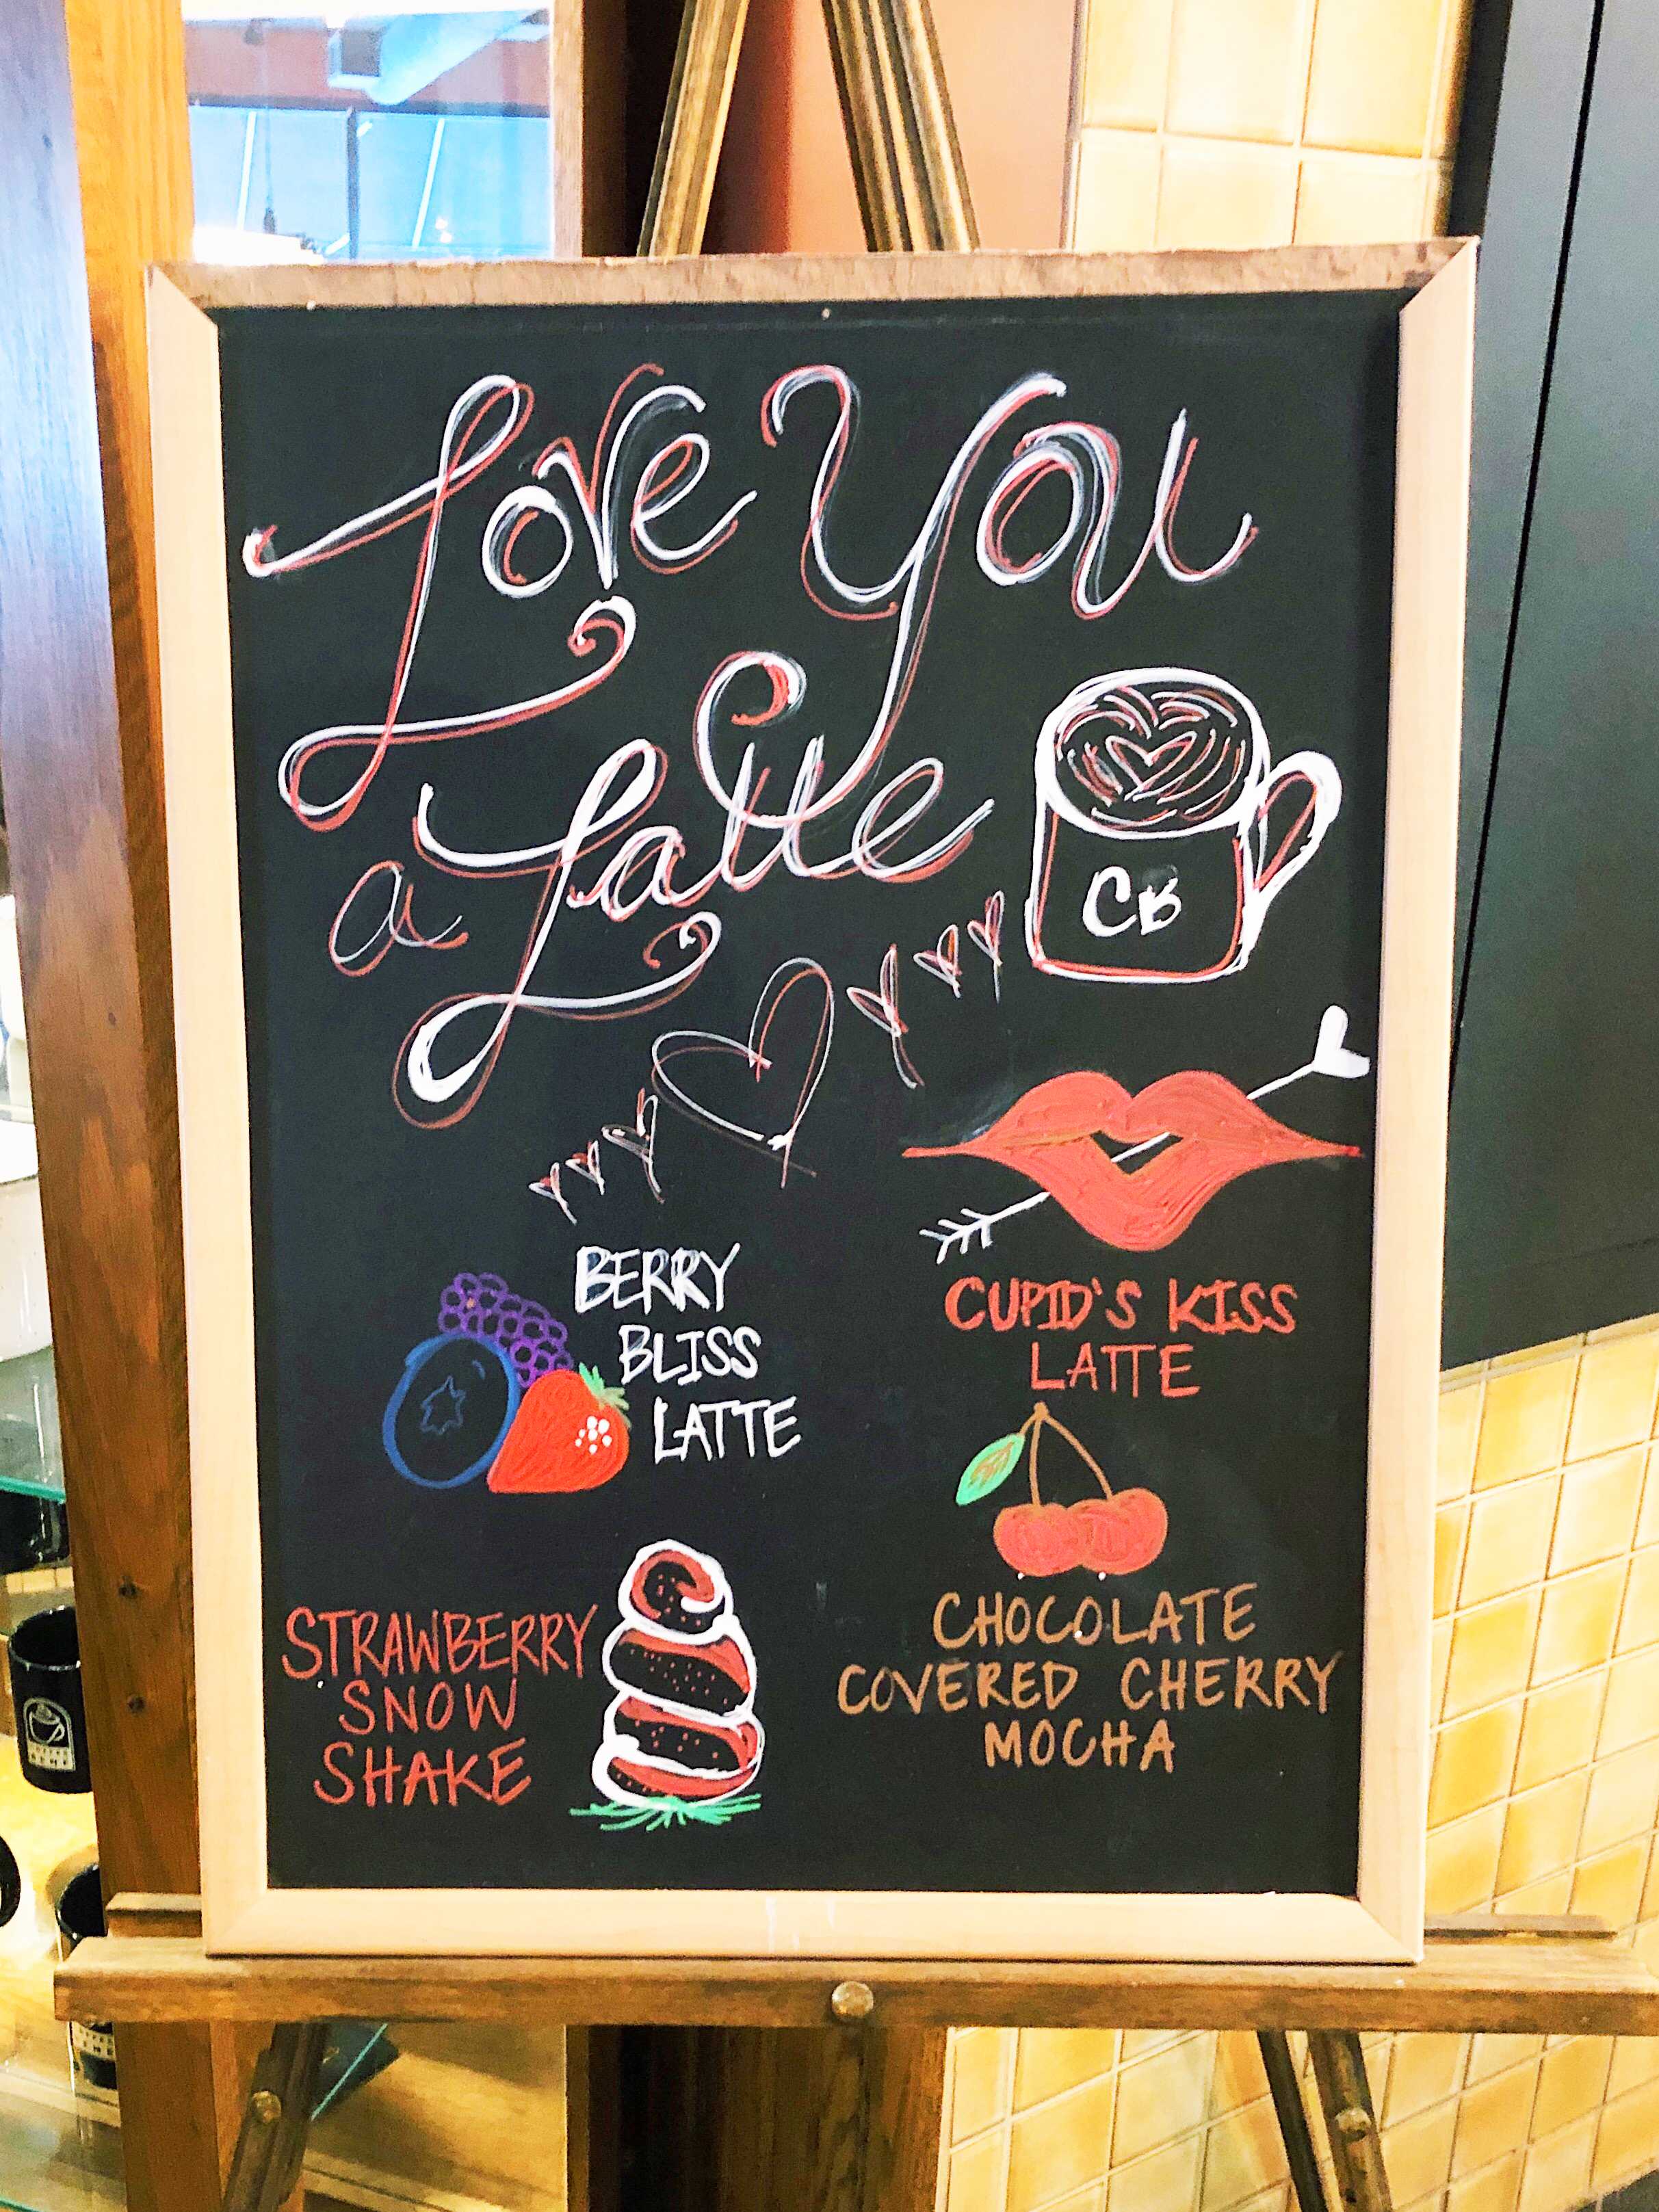 Love You
a Latte
CB
BERRY
BLISS
LATTE
CUPID'S KISS
LATTE
STRAWBERRY
SNOW
SHAKE
CHOCOLATE
COVERED CHERRY
MOCHA